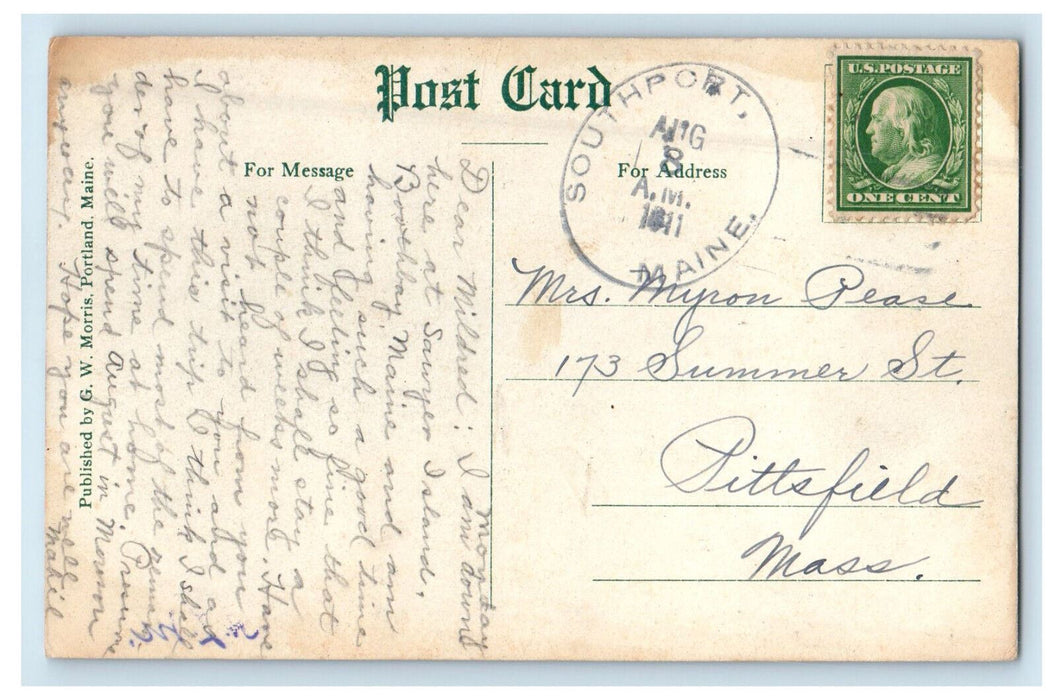 Post Card
For Message
For Address
SOUTHPORT,
AUG
8
A.M.
1911
MAINE.
U.S. POSTAGE
ONE CENT
Mrs. Myron Pease
173 Summer St.
Pittsfield
Mass.
Monday
Dear Mildred: I am down
here at Sawyer Island,
Boothbay, Maine and am
having such a good time
and feeling so fine that
I think I shall stay a
couple of weeks more. Have
not heard from you
about a visit to you and as
I have this trip I think I shall
have to spend most of the remain-
der of my time at home. Presume
you will spend August in
anyway. Hope you are well.
Mabel
Published by G. W. Morris, Portland, Maine.